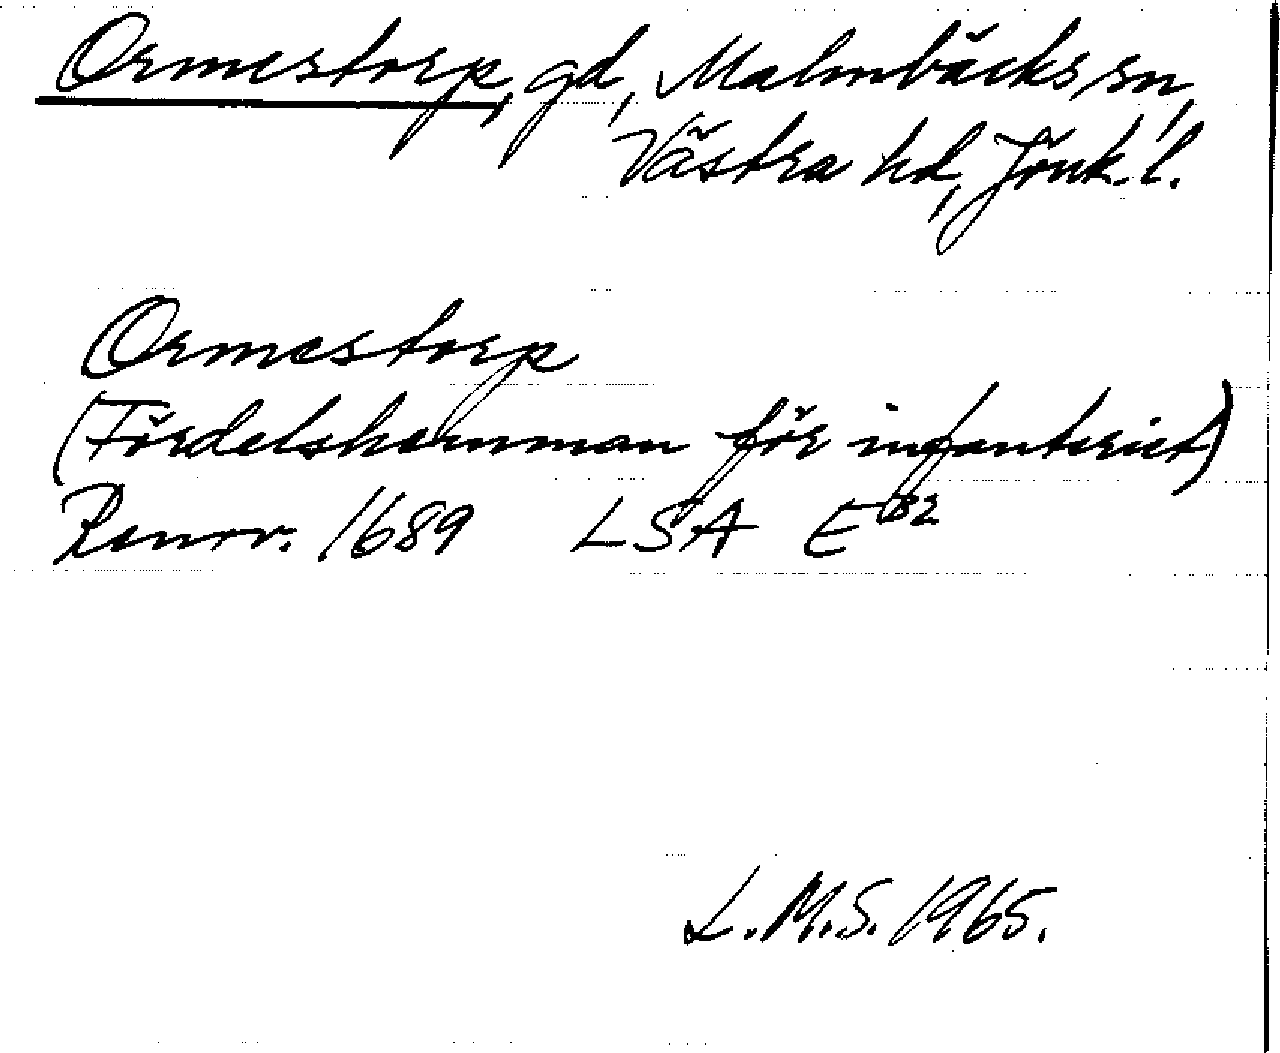 Ormestorp, gd, Malmbäcks sn,
Västra hd, Jönk. l.
Ormestorp
(Fördelshemman för infanteriet)
Renov. 1689 LSA E 182
L.M.S. 1965.